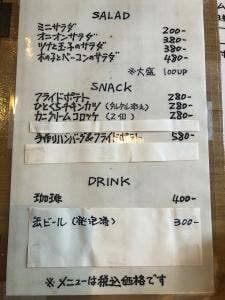 SALAD
ミニサラダ 200-
オニオンサラダ 380-
ツナと玉子のサラダ 380-
木の子とベーコンのサラダ 480-
※大盛 100UP
SNACK
フライドポテト 280-
ひとくちチキンカツ (タルタル添え) 280-
カニクリームコロッケ (2個) 280-
手作りハンバーグ&フライドポテト 580-
DRINK
珈琲 400-
缶ビール (発泡酒) 300-
※メニューは税込価格です